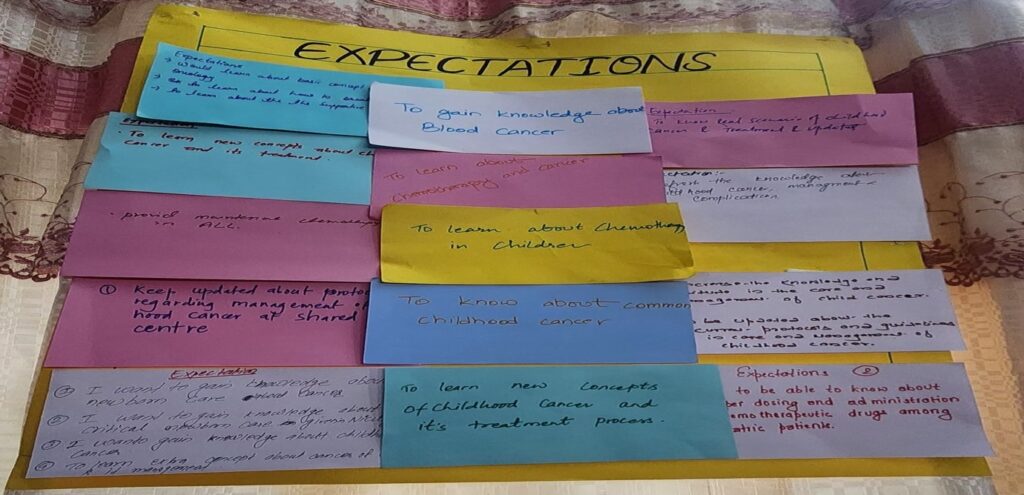 EXPECTATIONS
Expectations
→ Would learn about basic concept
oncology
→ to learn about how to
→ To learn about the supportive
To gain knowledge about
Blood Cancer
Expectation
To know real scenario of childhood
cancer & treatment & updates
To learn new concepts about
cancer and its treatment.
To learn about
chemotherapy and cancer
the knowledge
cancer, managment &
complication
provid maintenance
in ALL.
To learn about chemotherapy
in children
① Keep updated about
regarding management of
hood cancer at shared
centre
To know about common
childhood cancer
knowledge and
in the care and
of child cancer.
be updated about the
current protocols and guidelines
in care and management of
childhood cancer.
Expectation
① I want to gain knowledge about
newborn care
② I want to gain knowledge about
Critical care
③ I wants to gain knowledge about
Cancer
④ To learn extra concept about cancer of
& it management
To learn new concepts
Of childhood Cancer and
it's treatment process.
Expectations ②
to be able to know about
dosing and administration
drugs among
patients.